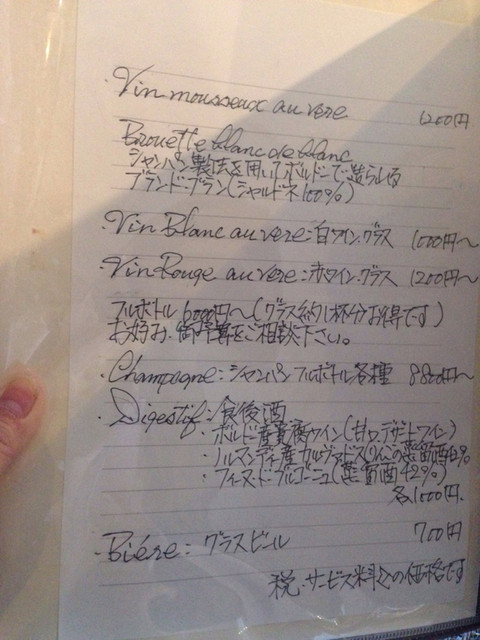 ・Vin mousseux au vere 1200円
Brouette blanc de blanc
シャンパン製法を用いてボルドーで造られる
ブランド・ブラン(シャルドネ100%)
・Vin Blanc au vere:白ワイン.グラス 1000円〜
・Vin Rouge au vere:赤ワイン.グラス 1200円〜
フルボトル 6000円〜(グラス約1杯分お得です)
お好み、御予算をご相談下さい。
・Champagne:シャンパン フルボトル各種 8800円〜
・Digestif:食後酒
・ボルドー産貴腐ワイン(甘口デザートワイン)
・ノルマンディ産カルヴァドス(りんごの蒸留酒
・フィーヌ・ド・ブルゴーニュ(蒸留酒42%)
各1000円.
・Biére:グラスビール 700円
税・サービス料込の価格です